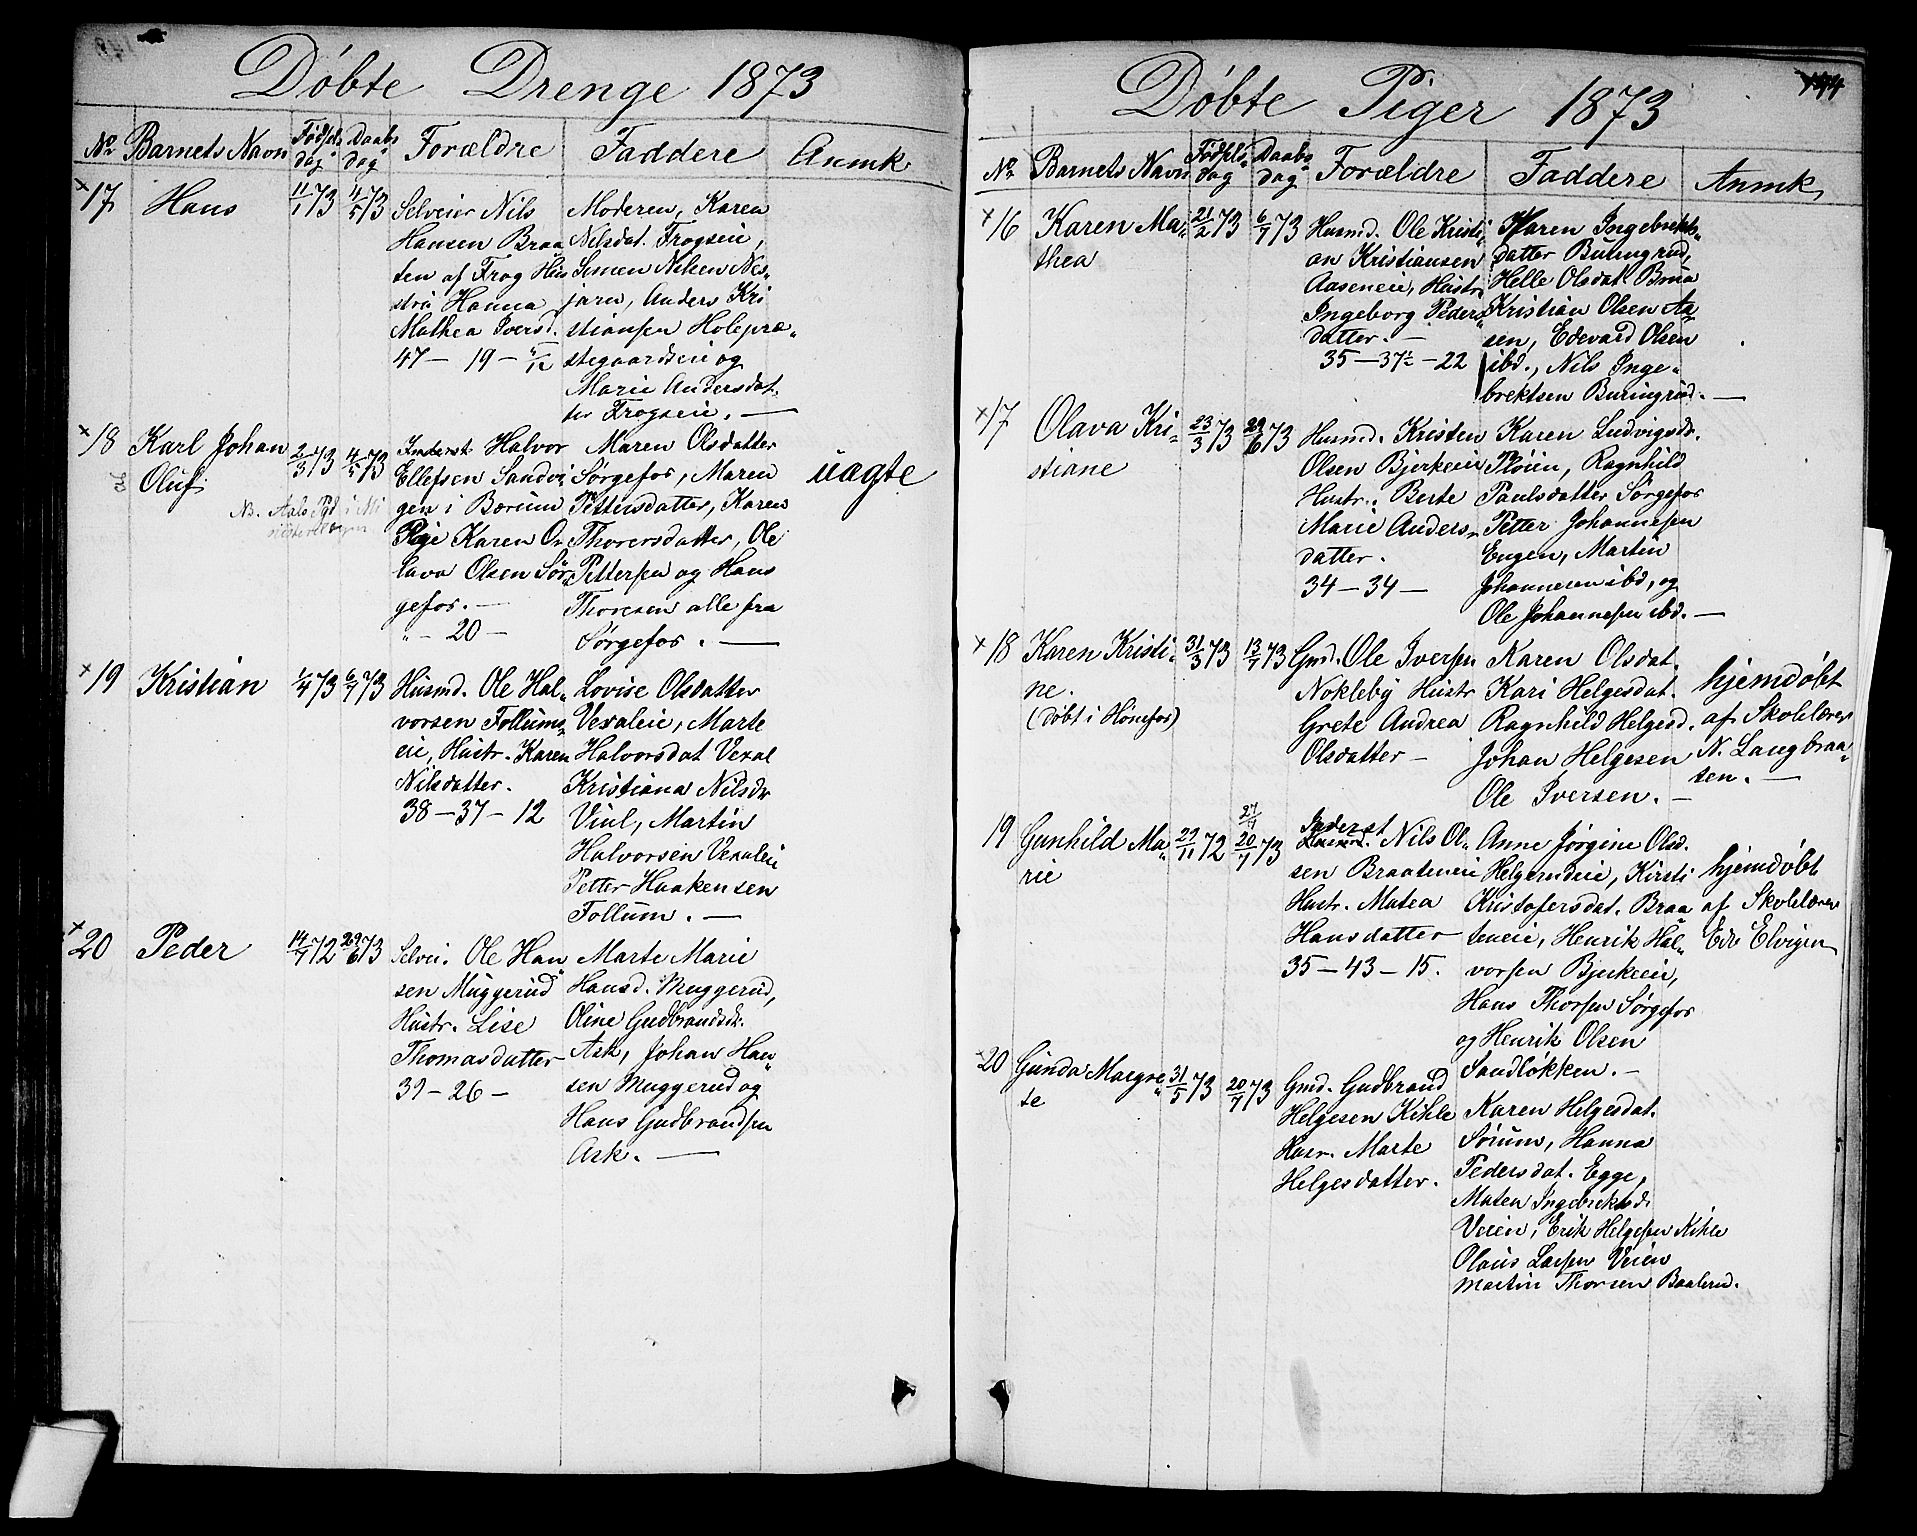 Döbte Drenge 1873
No Barnets Navn Fødselsdag Daabsdag Forældre Faddere Anmk.
17 Hans 11/1 73 4/5 73
Selveier Nils
Hansen Braa
ten af Frog Hus
stru Hanna
Mathea Iversd.
47 — 19 —
Moderen, Karen
Nilsdat. Frogseie,
Simen Nilsen Nes-
jarn, Anders Kri
stiansen Holepræ-
stegaardseie og
Marie Andersdat
ter Frogseie. —
18 Karl Johan
Oluf. 2/3 73 4/5 73
Inderst Halvor
Ellefsen Sandvi
gen i Bærum
Pige Karen O
lava Olsen Sør
gefos. —
" — 20 —
Maren Olsdatter
Sørgefos, Maren
Pettersdatter, Karen
Thoresdatter, Ole
Pettersen og Hans
Thoresen alle fra
Sørgefos. —
uægte
19 Kristian 1/4 73 6/7 73
Husmd. Ole Hal-
vorsen Follums-
eie, Hustr. Karen
Nilsdatter.
38 — 37 — 12
Lovise Olsdatter
Vexaleie, Marte
Halvorsdat Vexal
Kristiana Nilsdr
Viul, Martin
Halvorsen Vexaleie
Petter Haakensen
Follum. —
20 Peder 14/7 72 29/6 73
Selvei. Ole Han
sen Muggerud
Hustr. Lise
Thomasdatter
39 — 26 —
Marte Marie
Hansd. Muggerud,
Oline Gudbrandsdr.
Ask, Johan Han-
sen Muggerud og
Hans Gudbrandsen
Ask. —
Döbte Piger 1873
No Barnets Navn Fødselsdag Daabsdag Forældre Faddere Anmk.
16 Karen Ma-
thea 21/2 73 6/7 73
Husmd. Ole Kristi
an Kristiansen
Aaseneie, Hustr
Ingeborg Peders
datter. —
35 — 37 1/2 — 22
Karen Ingebrekts-
datter Buringrud,
Helle Olsdat. Brua
Kristian Olsen Aa
sen, Edevard Olsen
ibd., Nils Inge-
brektsen Buringrud. —
17 Olava Kri-
stiane 23/3 73 29/6 73
Husmd. Kristen
Olsen Bjerkeeie
Hustr. Berte
Marie Anders-
datter.
34 — 34 —
Karen Ludvigsdr.
Pløien, Ragnhild
Paulsdatter Sørgefos
Petter Johannesen
Engen, Martin
Johannesen ibd, og
Ole Johannesen ibd. —
18 Karen Kristi-
ne.
(døbt i Hønefos) 31/3 73 13/7 73
Gmd. Ole Iversen
Nokleby Hustr
Grete Andrea
Olsdatter —
Karen Olsdat.
Kari Helgesdat.
Ragnhild Helgesd.
Johan Helgesen
Ole Iversen. —
hjemdøbt
af Skolelærer
N. Langbraa-
ten. —
19 Gunhild Ma-
rie 29/11 72 20/7 73
Inderst
Nils Ol-
sen Braateneie
Hustr. Matea
Hansdatter
35 — 43 — 15.
Anne Jørgine Olsd.
Helgerudeie, Kirsti
Kristofersdat. Braa
teneie, Henrik Hal-
vorsen Bjerkeeie,
Hans Thorsen Sørgefos
og Henrik Olsen
Sandløkken. —
hjemdøbt
af Skolelærer
Edv Elvigen
20 Gunda Margre-
te 31/5 73 20/7 73
Gmd. Gudbrand
Helgesen Kihle
Hustr. Marte
Helgesdatter.
Karen Helgesdat.
Sørum, Hanna
Pedersdat. Egge,
Maten Ingebrektsd.
Veien, Erik Helgesen Kihle
Olaus Larsen Veien
Martin Thorsen Baalerud.